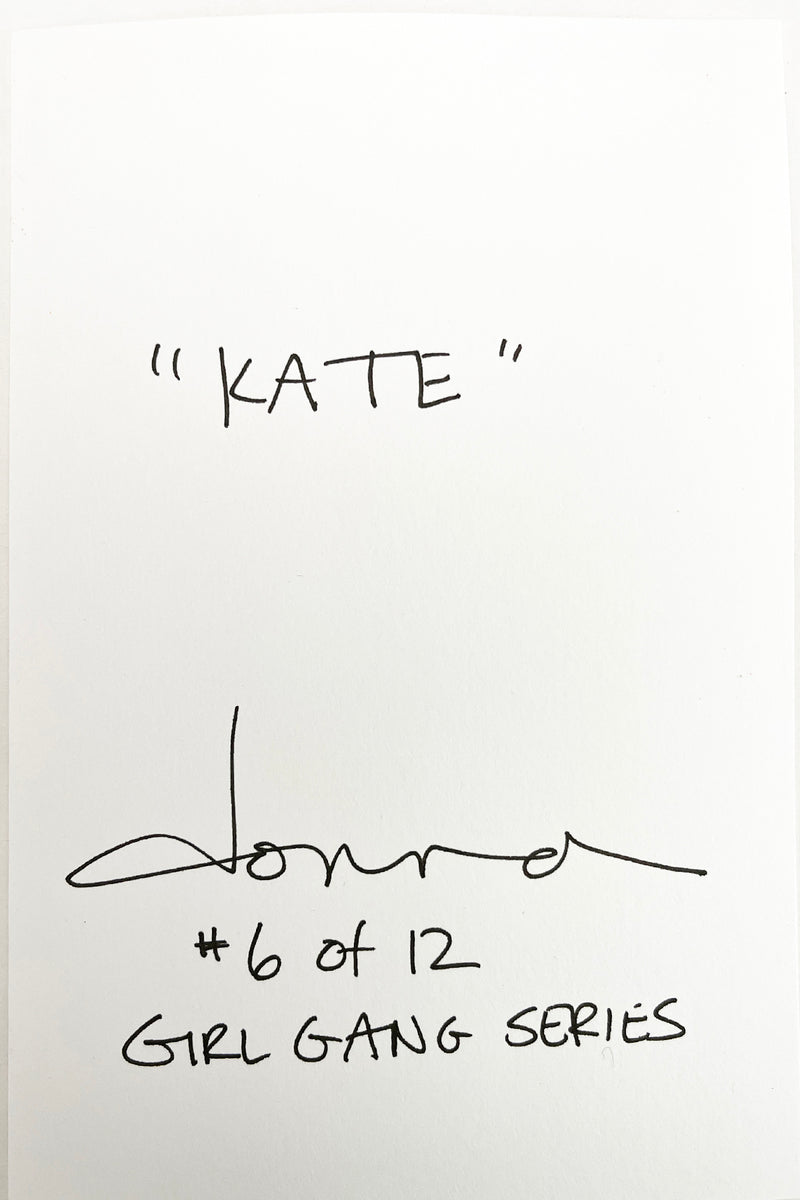 "KATE"
donna
#6 of 12
GIRL GANG SERIES